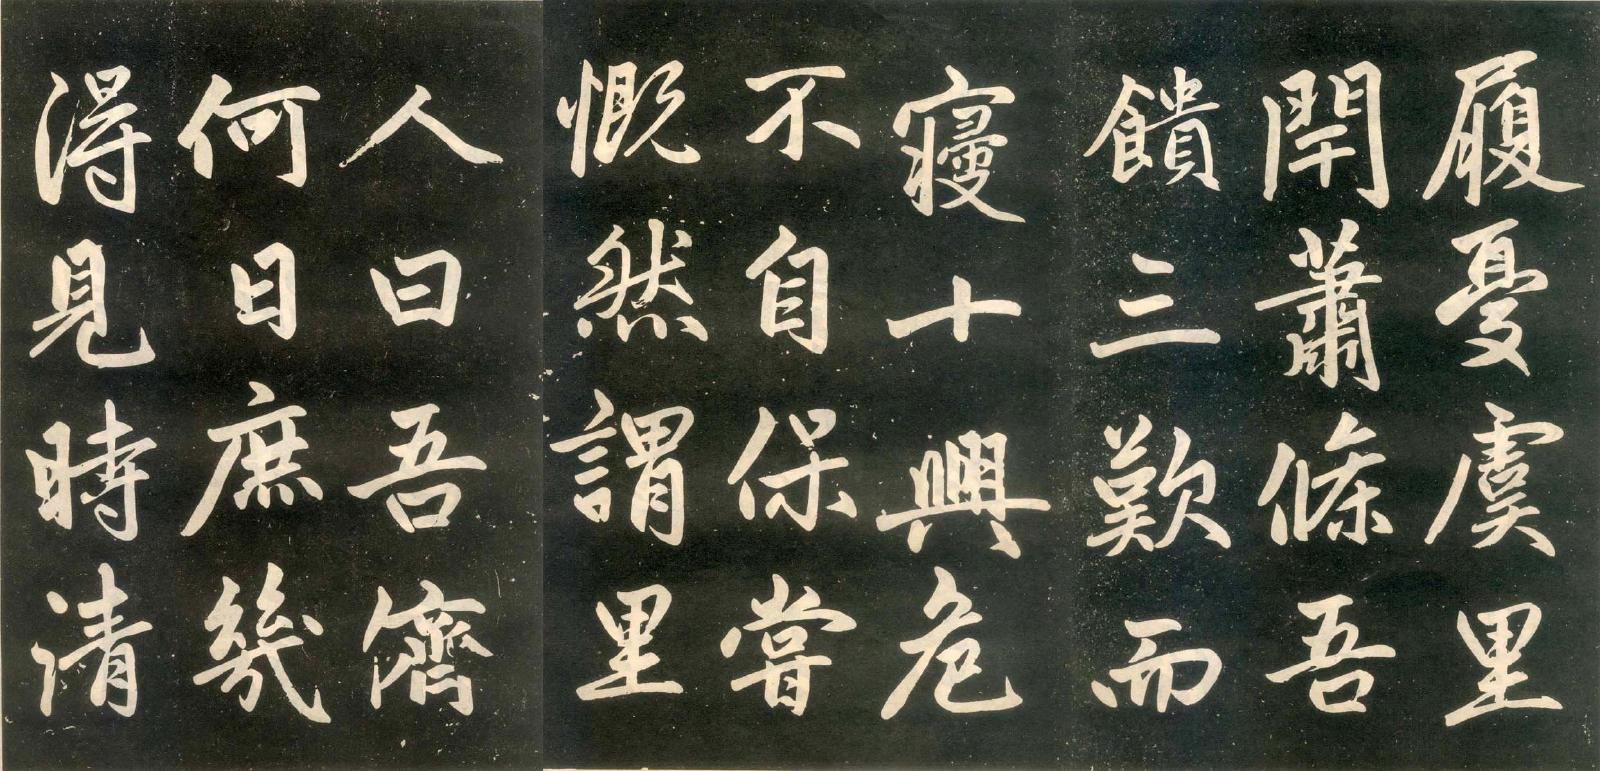 履憂虞里
閈蕭條吾
饋三歎而
寢十興危
不自保嘗
慨然謂里
人曰吾儕
何日庶幾
得見時清